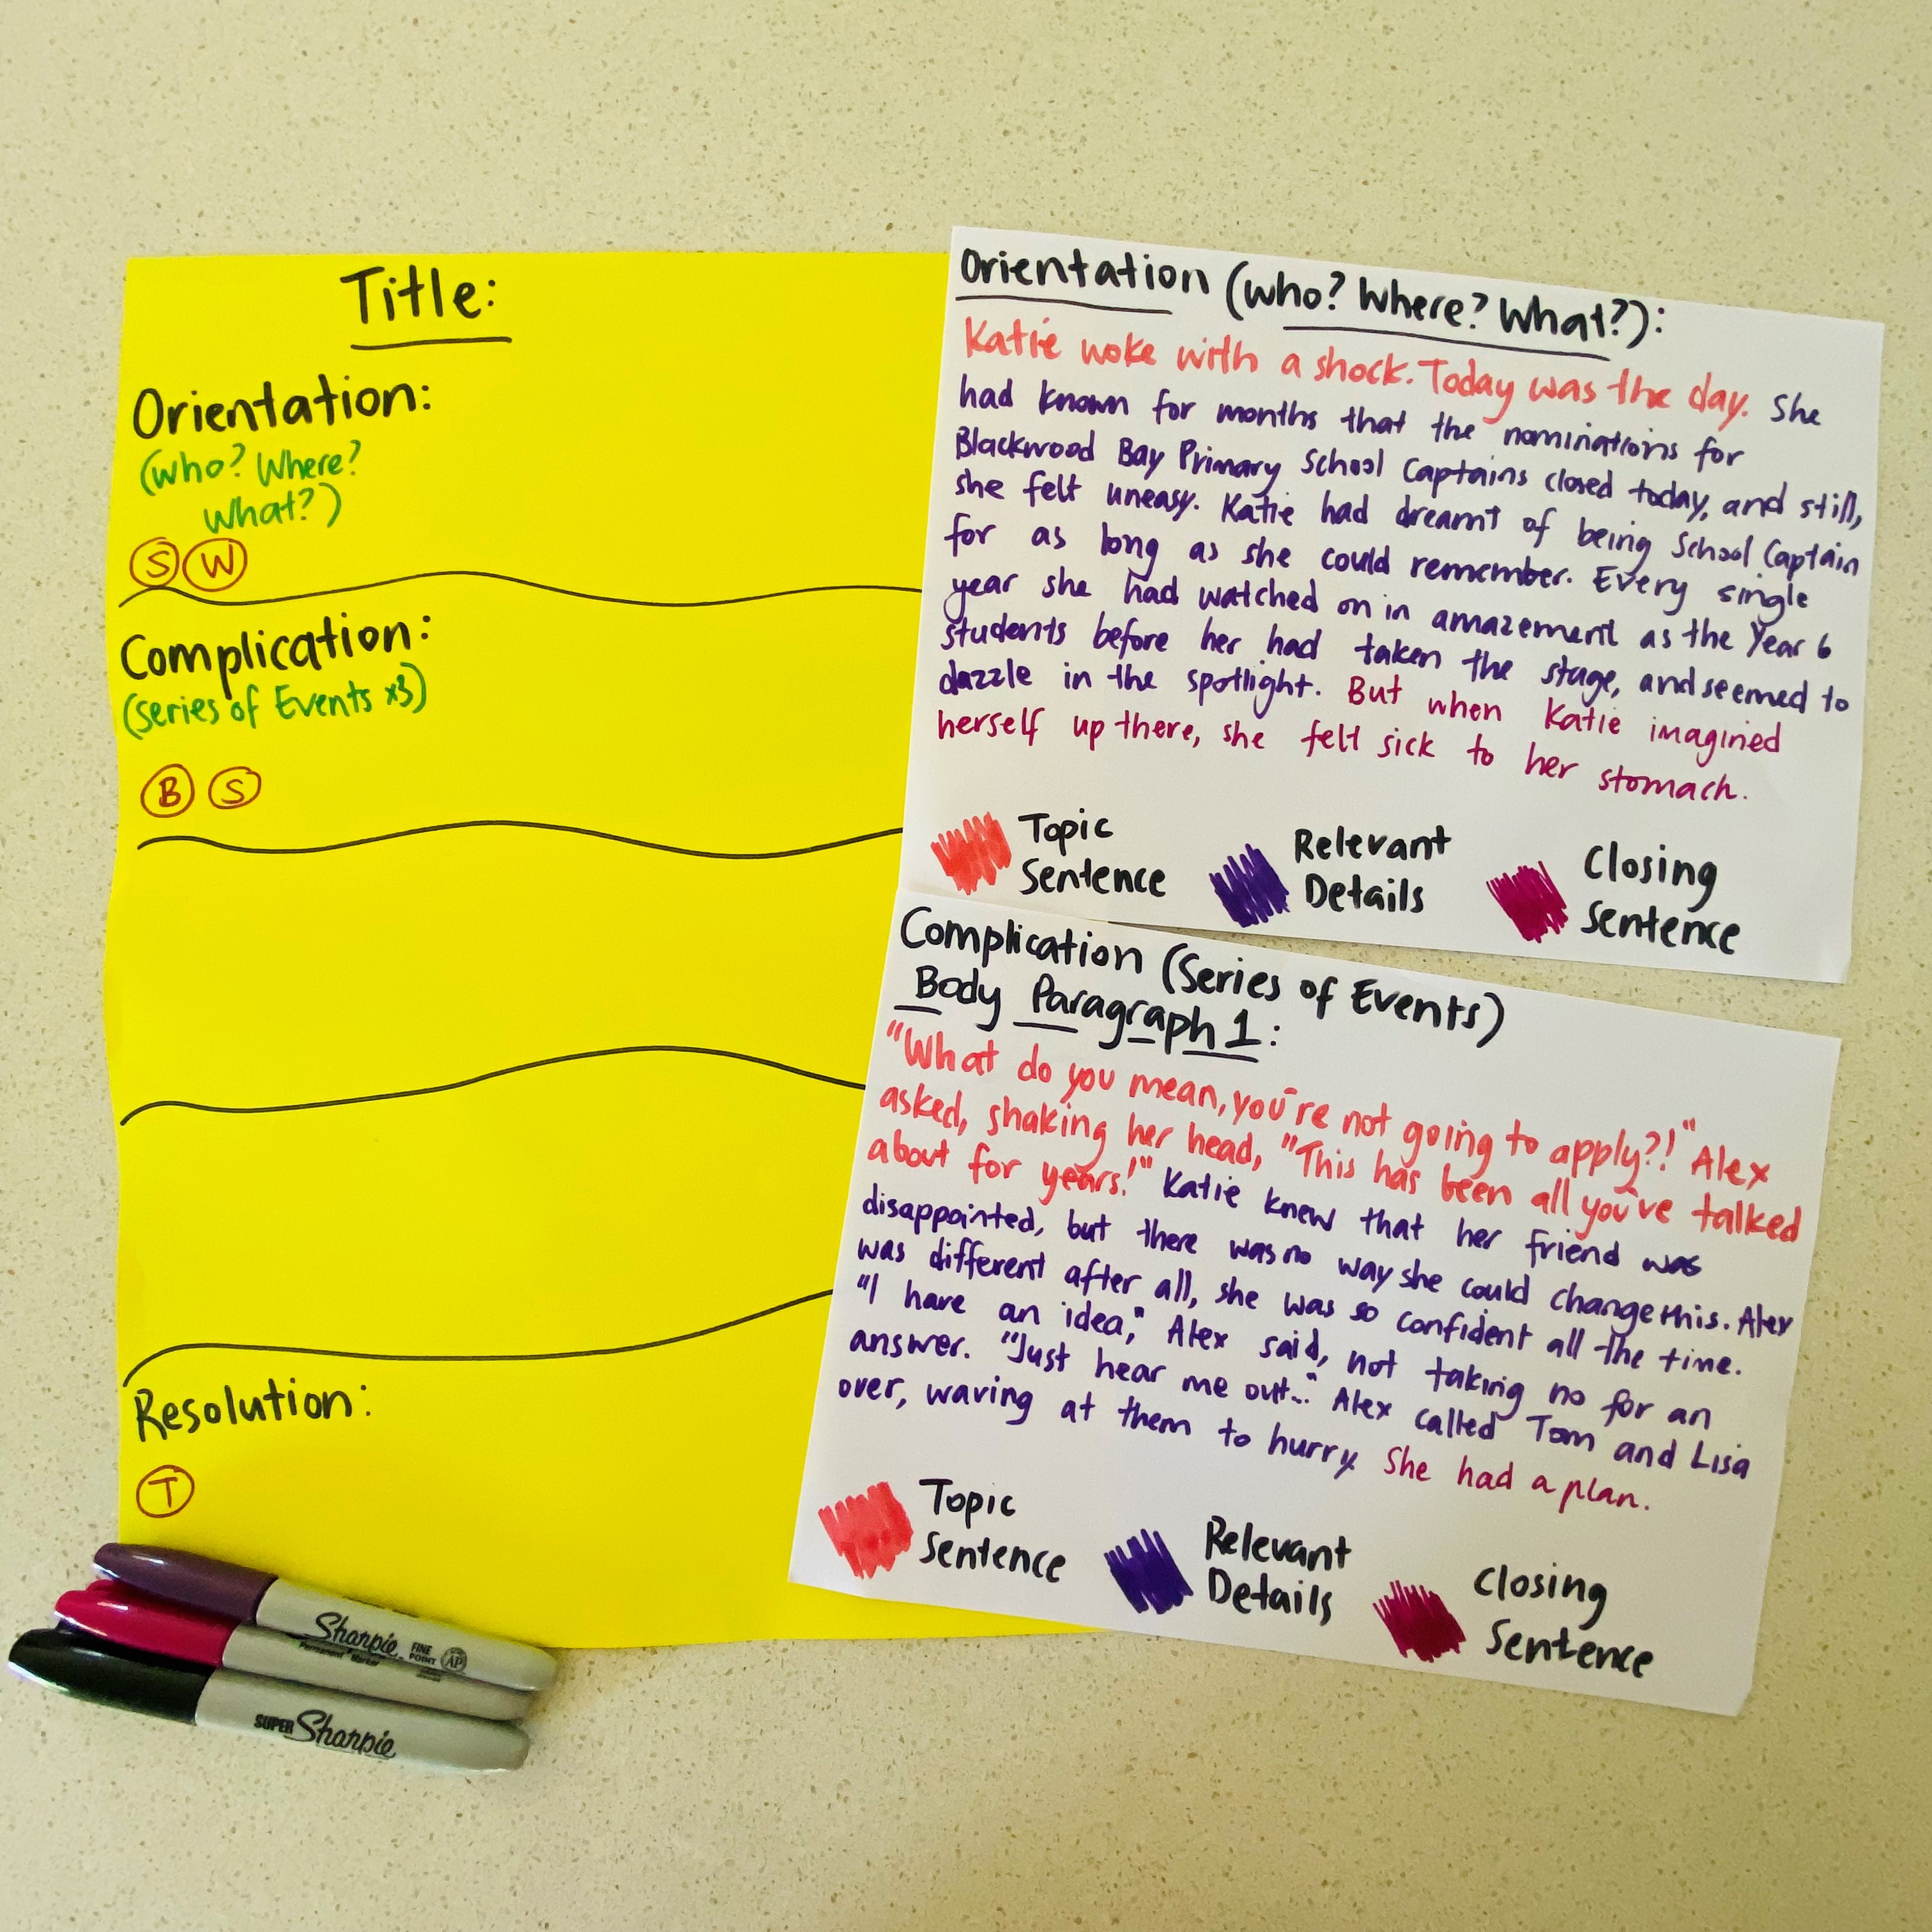 Title:
Orientation:
(who? Where?
What?)
S W
Complication:
(series of Events x3)
B S
Resolution:
T
Orientation (who? Where? What?):
Katie woke with a shock. Today was the day. She
had known for months that the nominations for
Blackwood Bay Primary School Captains closed today, and still,
she felt uneasy. Katie had dreamt of being School Captain
for as long as she could remember. Every single
year she had watched on in amazement as the Year 6
students before her had taken the stage, and seemed to
dazzle in the spotlight. But when Katie imagined
herself up there, she felt sick to her stomach.
Topic
Sentence
Relevant
Details
Closing
Sentence
Complication (Series of Events)
Body Paragraph 1:
"What do you mean, you're not going to apply?!" Alex
asked, shaking her head, "This has been all you've talked
about for years!" Katie knew that her friend was
disappointed, but there was no way she could change this. Alex
was different after all, she was so confident all the time.
"I have an idea," Alex said, not taking no for an
answer. "Just hear me out..." Alex called Tom and Lisa
over, waving at them to hurry. She had a plan.
Topic
Sentence
Relevant
Details
Closing
Sentence
Sharpie FINE POINT AP
Permanent Marker
SUPER Sharpie